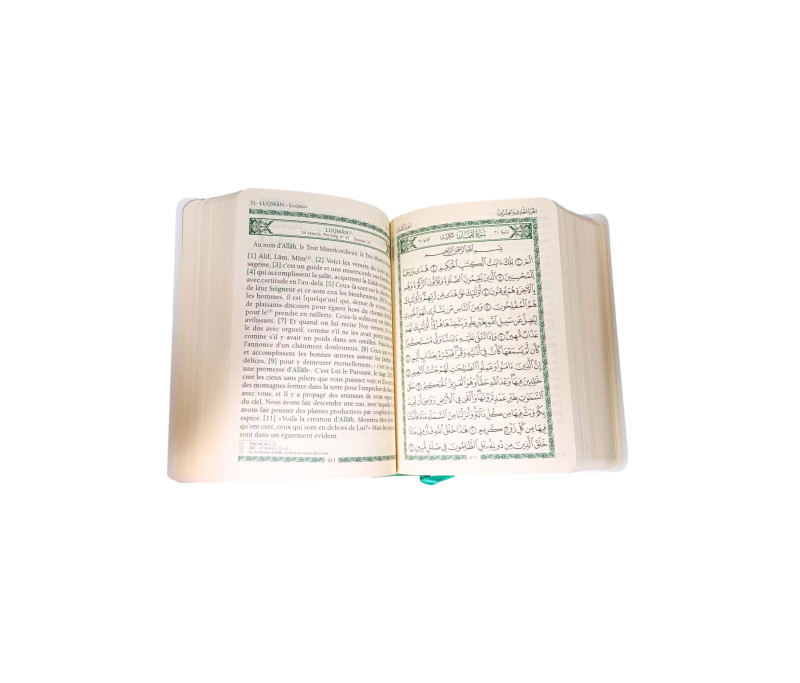 31- LUQMÂN - Luqmân
LUQMÂN
34 versets, Pré-hég. n° 57
Au nom d'Allâh, le Tout Miséricordieux, le Très Miséricordieux
[1] Alif, Lâm, Mîm. [2] Voici les versets du Livre
sagesse, [3] c'est un guide et une miséricorde aux
[4] qui accomplissent la ṣalât, acquittent la Zakât
avec certitude en l'au-delà. [5] Ceux-là sont sur le
de leur Seigneur et ce sont eux les bienheureux. [6]
les hommes, il est [quelqu'un] qui, dénué de
de plaisants discours pour égarer hors du chemin
pour le prendre en raillerie. Ceux-là subiront un
avilissant. [7] Et quand on lui récite Nos versets,
le dos avec orgueil, comme s'il ne les avait point
comme s'il y avait un poids dans ses oreilles.
l'annonce d'un châtiment douloureux. [8] Ceux qui
et accomplissent les bonnes œuvres auront les
délices, [9] pour y demeurer éternellement, - c'est en
une promesse d'Allâh-. C'est Lui le Puissant, le Sage. [10]
créé les cieux sans piliers que vous puissiez voir; et Il a
des montagnes fermes dans la terre pour l'empêcher de
avec vous; et Il y a propagé des animaux de toute
du ciel, Nous avons fait descendre une eau, avec
avons fait pousser des plantes productives par couples de
espèce. [11] «Voilà la création d'Allâh. Montrez-Moi
qu'ont créé, ceux qui sont en dehors de Lui?» Mais les
sont dans un égarement évident.
411
الجزء الحادي والعشرون
سورة لقمان
سُورَةُ لُقْمَانَ
بِسْمِ اللَّهِ الرَّحْمَٰنِ الرَّحِيمِ
الٓمٓ ١ تِلْكَ ءَايَٰتُ ٱلْكِتَٰبِ ٱلْحَكِيمِ ٢ هُدًى وَرَحْمَةً
لِّلْمُحْسِنِينَ ٣ ٱلَّذِينَ يُقِيمُونَ ٱلصَّلَوٰةَ وَيُؤْتُونَ ٱلزَّكَوٰةَ وَهُم
بِٱلْءَاخِرَةِ هُمْ يُوقِنُونَ ٤ أُوْلَٰٓئِكَ عَلَىٰ هُدًى مِّن رَّبِّهِمْ وَأُوْلَٰٓئِكَ
هُمُ ٱلْمُفْلِحُونَ ٥ وَمِنَ ٱلنَّاسِ مَن يَشْتَرِى لَهْوَ ٱلْحَدِيثِ
لِيُضِلَّ عَن سَبِيلِ ٱللَّهِ بِغَيْرِ عِلْمٍ وَيَتَّخِذَهَا هُزُوًا أُوْلَٰٓئِكَ لَهُمْ
عَذَابٌ مُّهِينٌ ٦ وَإِذَا تُتْلَىٰ عَلَيْهِ ءَايَٰتُنَا وَلَّىٰ مُسْتَكْبِرًا
كَأَن لَّمْ يَسْمَعْهَا كَأَنَّ فِىٓ أُذُنَيْهِ وَقْرًا فَبَشِّرْهُ بِعَذَابٍ أَلِيمٍ ٧
إِنَّ ٱلَّذِينَ ءَامَنُواْ وَعَمِلُواْ ٱلصَّٰلِحَٰتِ لَهُمْ جَنَّٰتُ ٱلنَّعِيمِ ٨
خَٰلِدِينَ فِيهَا وَعْدَ ٱللَّهِ حَقًّا وَهُوَ ٱلْعَزِيزُ ٱلْحَكِيمُ ٩ خَلَقَ
ٱلسَّمَٰوَٰتِ بِغَيْرِ عَمَدٍ تَرَوْنَهَا وَأَلْقَىٰ فِى ٱلْأَرْضِ رَوَٰسِىَ أَن تَمِيدَ
بِكُمْ وَبَثَّ فِيهَا مِن كُلِّ دَآبَّةٍ وَأَنزَلْنَا مِنَ ٱلسَّمَآءِ مَآءً فَأَنۢبَتْنَا
فِيهَا مِن كُلِّ زَوْجٍ كَرِيمٍ ١٠ هَٰذَا خَلْقُ ٱللَّهِ فَأَرُونِى مَاذَا
خَلَقَ ٱلَّذِينَ مِن دُونِهِۦ بَلِ ٱلظَّٰلِمُونَ فِى ضَلَٰلٍ مُّبِينٍ ١١
٤١١